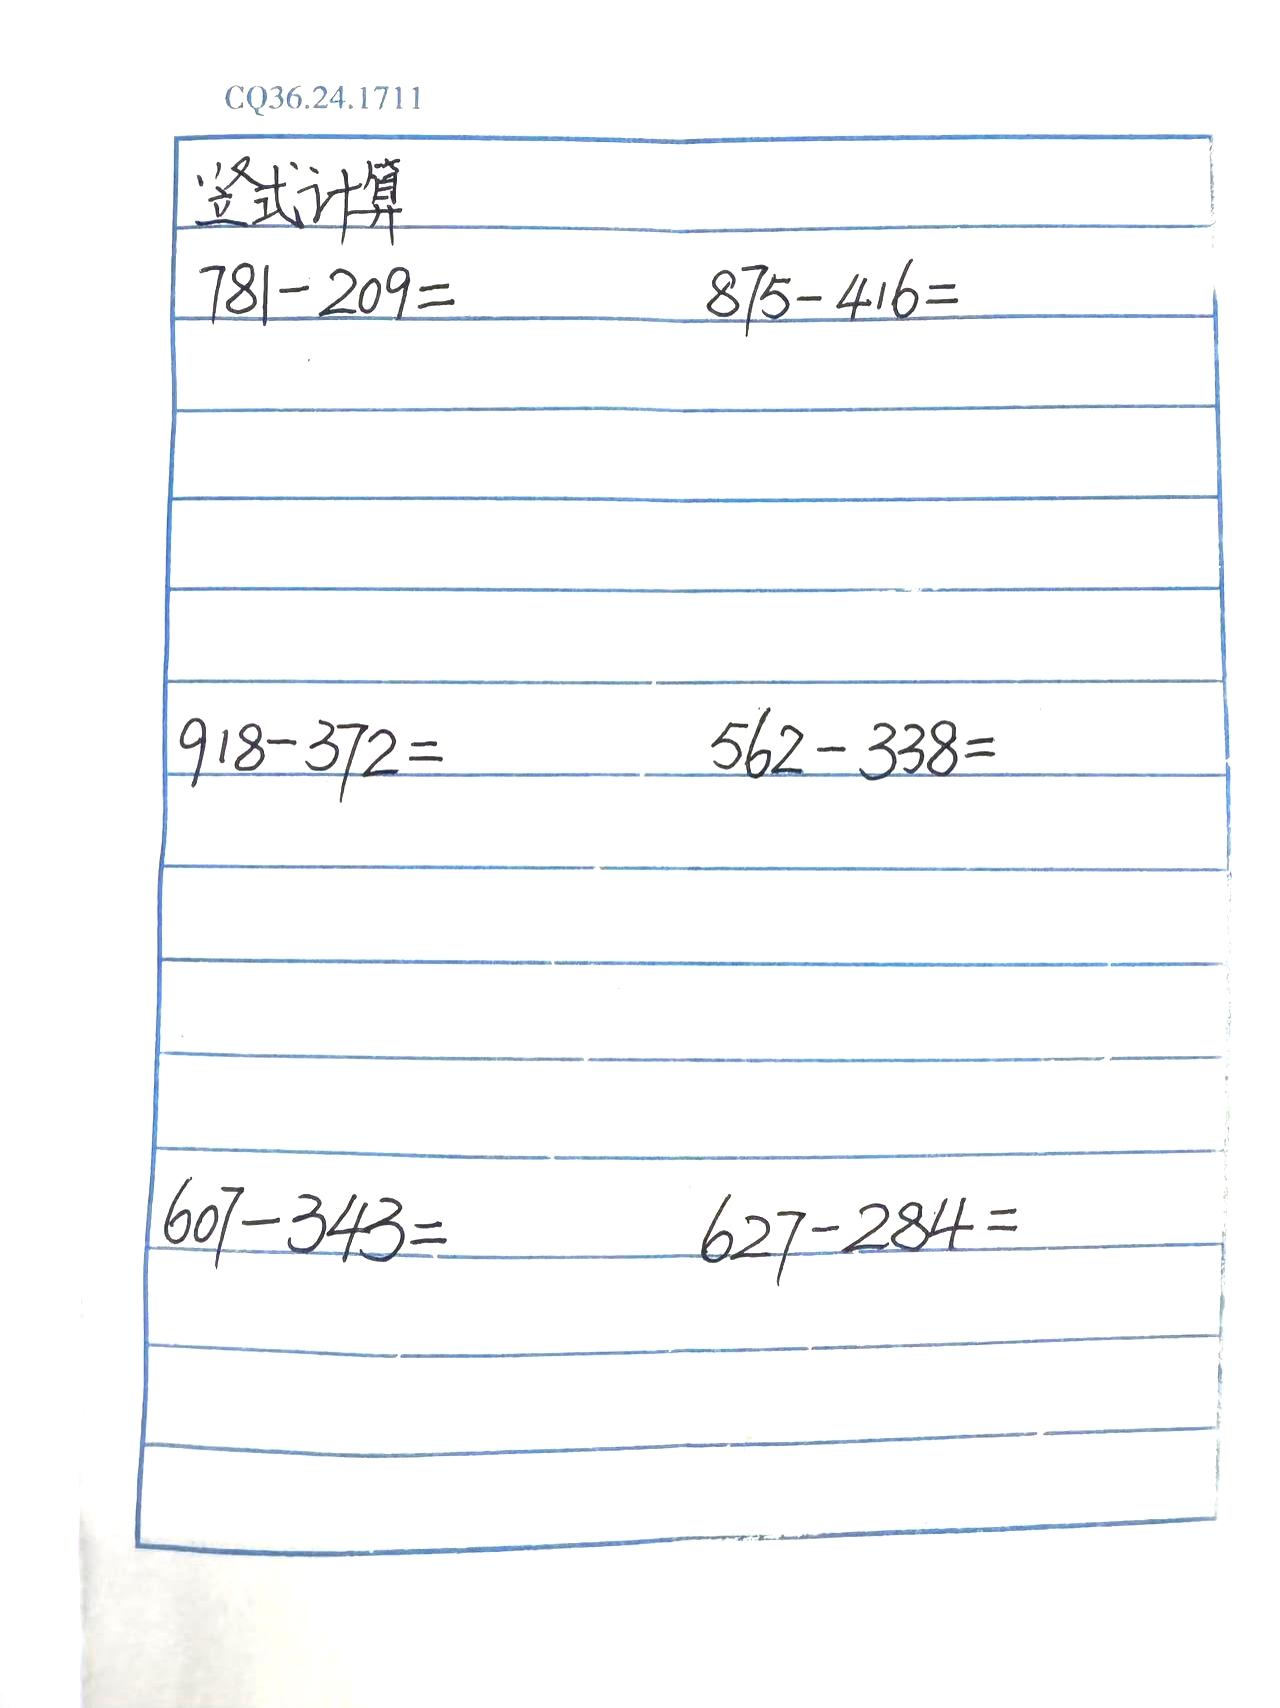 CQ36.24.1711
竖式计算
781-209= 875-416=
918-372= 562-338=
607-343= 627-284=